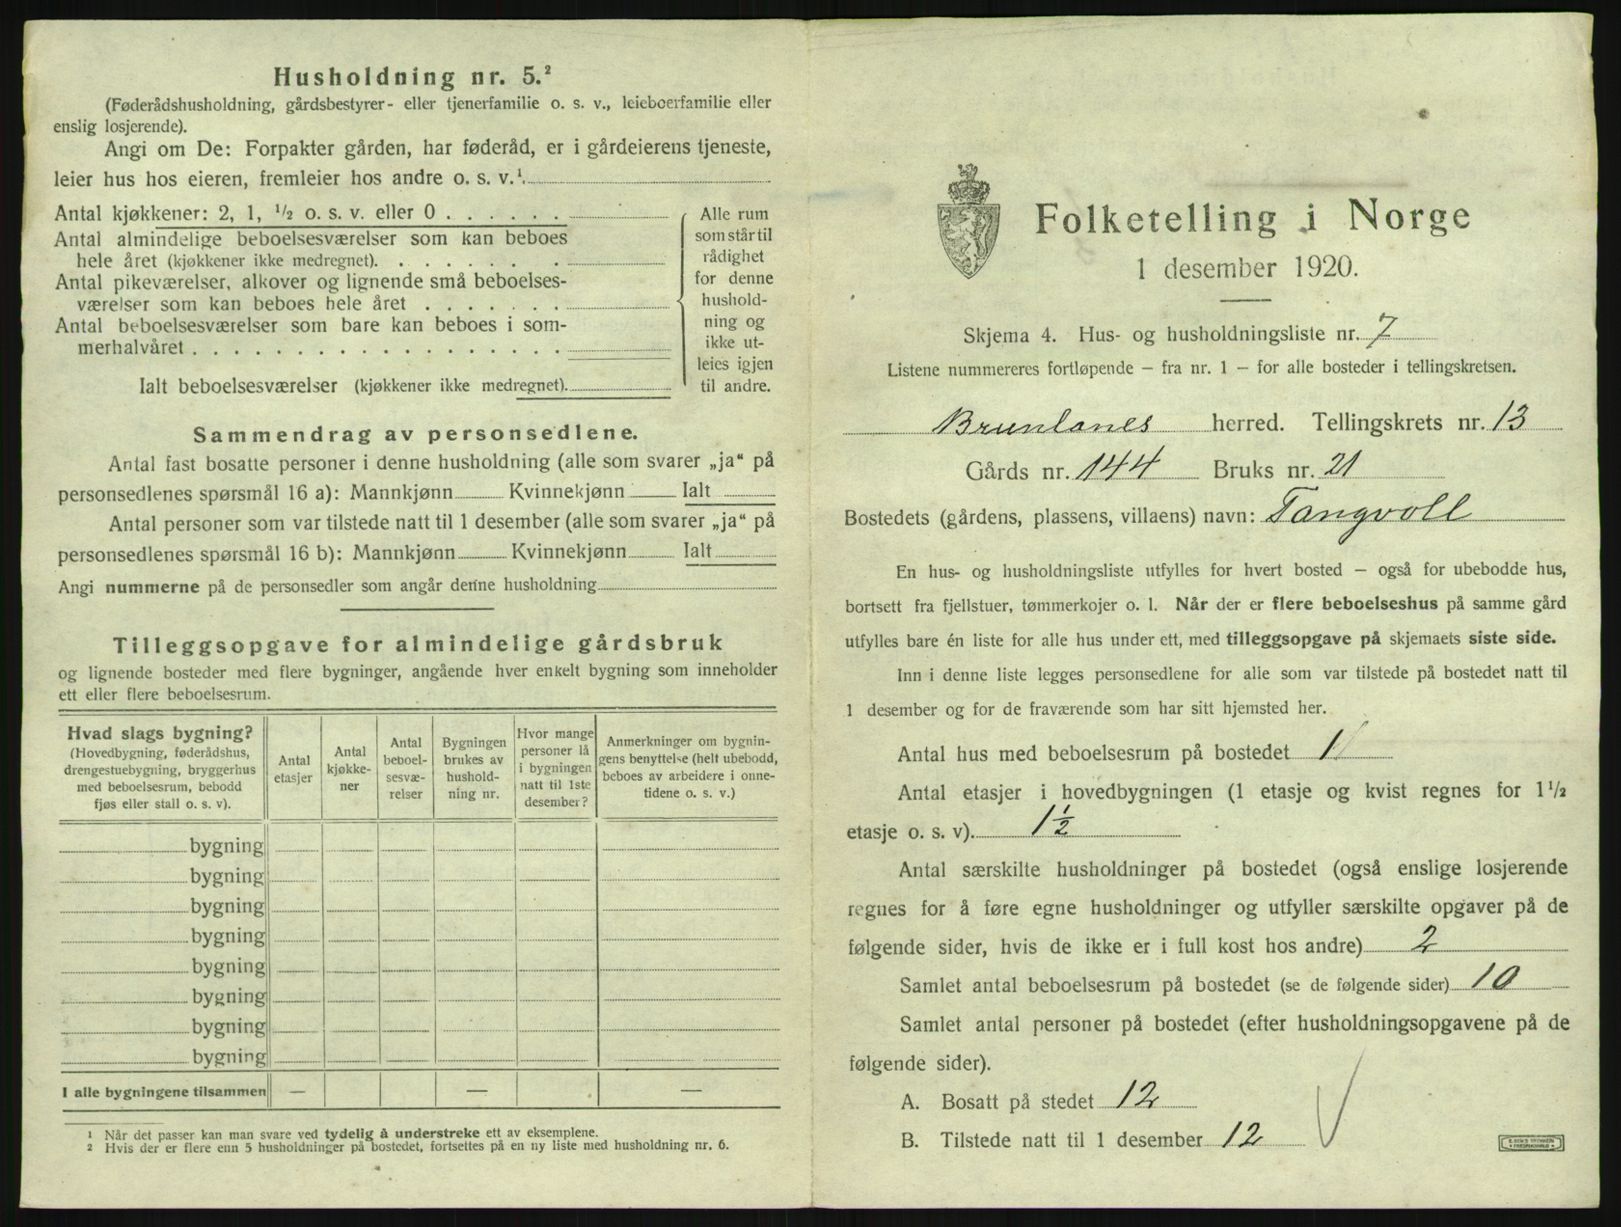 Husholdning nr. 5.²
(Føderådshusholdning, gårdsbestyrer- eller tjenerfamilie o. s. v., leieboerfamilie eller
enslig losjerende).
Angi om De: Forpakter gården, har føderåd, er i gårdeierens tjeneste,
leier hus hos eieren, fremleier hos andre o. s. v.¹
Antal kjøkkener: 2, 1, ½ o. s. v. eller 0 . . . . . .
Antal almindelige beboelsesværelser som kan beboes
hele året (kjøkkener ikke medregnet). . . . . . . .
Antal pikeværelser, alkover og lignende små beboelses-
værelser som kan beboes hele året . . . . . . .
Antal beboelsesværelser som bare kan beboes i som-
merhalvåret . . . . . . . . . . . . . . . . . .
Ialt beboelsesværelser (kjøkkener ikke medregnet).
Alle rum
som står til
rådighet
for denne
hushold-
ning og
ikke ut-
leies igjen
til andre.
Sammendrag av personsedlene.
Antal fast bosatte personer i denne husholdning (alle som svarer „ja“ på
personsedlenes spørsmål 16 a): Mannkjønn Kvinnekjønn Ialt
Antal personer som var tilstede natt til 1 desember (alle som svarer „ja“ på
personsedlenes spørsmål 16 b): Mannkjønn Kvinnekjønn Ialt
Angi nummerne på de personsedler som angår denne husholdning
Tilleggsopgave for almindelige gårdsbruk
og lignende bosteder med flere bygninger, angående hver enkelt bygning som inneholder
ett eller flere beboelsesrum.
Hvad slags bygning?
(Hovedbygning, føderådshus,
drengestuebygning, bryggerhus
med beboelsesrum, bebodd
fjøs eller stall o. s. v).
Antal
etasjer
Antal
kjøkke-
ner
Antal
beboel-
sesvæ-
relser
Bygningen
brukes av
hushold-
ning nr.
Hvor mange
personer lå
i bygningen
natt til 1ste
desember?
Anmerkninger om bygnin-
gens benyttelse (helt ubebodd,
beboes av arbeidere i onne-
tidene o. s. v.)
bygning
bygning
bygning
bygning
bygning
bygning
bygning
bygning
I alle bygningene tilsammen — — —
¹ Når det passer kan man svare ved tydelig å understreke ett av eksemplene.
² Hvis der er flere enn 5 husholdninger på bostedet, fortsettes på en ny liste med husholdning nr. 6.
Folketelling i Norge
1 desember 1920.
Skjema 4. Hus- og husholdningsliste nr. 7
Listene nummereres fortløpende — fra nr. 1 — for alle bosteder i tellingskretsen.
Brunlanes herred. Tellingskrets nr. 13
Gårds nr. 144 Bruks nr. 21
Bostedets (gårdens, plassens, villaens) navn: Tangvoll
En hus- og husholdningsliste utfylles for hvert bosted — også for ubebodde hus,
bortsett fra fjellstuer, tømmerkojer o. l. Når der er flere beboelseshus på samme gård
utfylles bare én liste for alle hus under ett, med tilleggsopgave på skjemaets siste side.
Inn i denne liste legges personsedlene for alle som var tilstede på bostedet natt til
1 desember og for de fraværende som har sitt hjemsted her.
Antal hus med beboelsesrum på bostedet 1
Antal etasjer i hovedbygningen (1 etasje og kvist regnes for 1½
etasje o. s. v). 1½
Antal særskilte husholdninger på bostedet (også enslige losjerende
regnes for å føre egne husholdninger og utfyller særskilte opgaver på de
følgende sider, hvis de ikke er i full kost hos andre) 2
Samlet antal beboelsesrum på bostedet (se de følgende sider) 10
Samlet antal personer på bostedet (efter husholdningsopgavene på de
følgende sider).
A. Bosatt på stedet 12
B. Tilstede natt til 1 desember 12